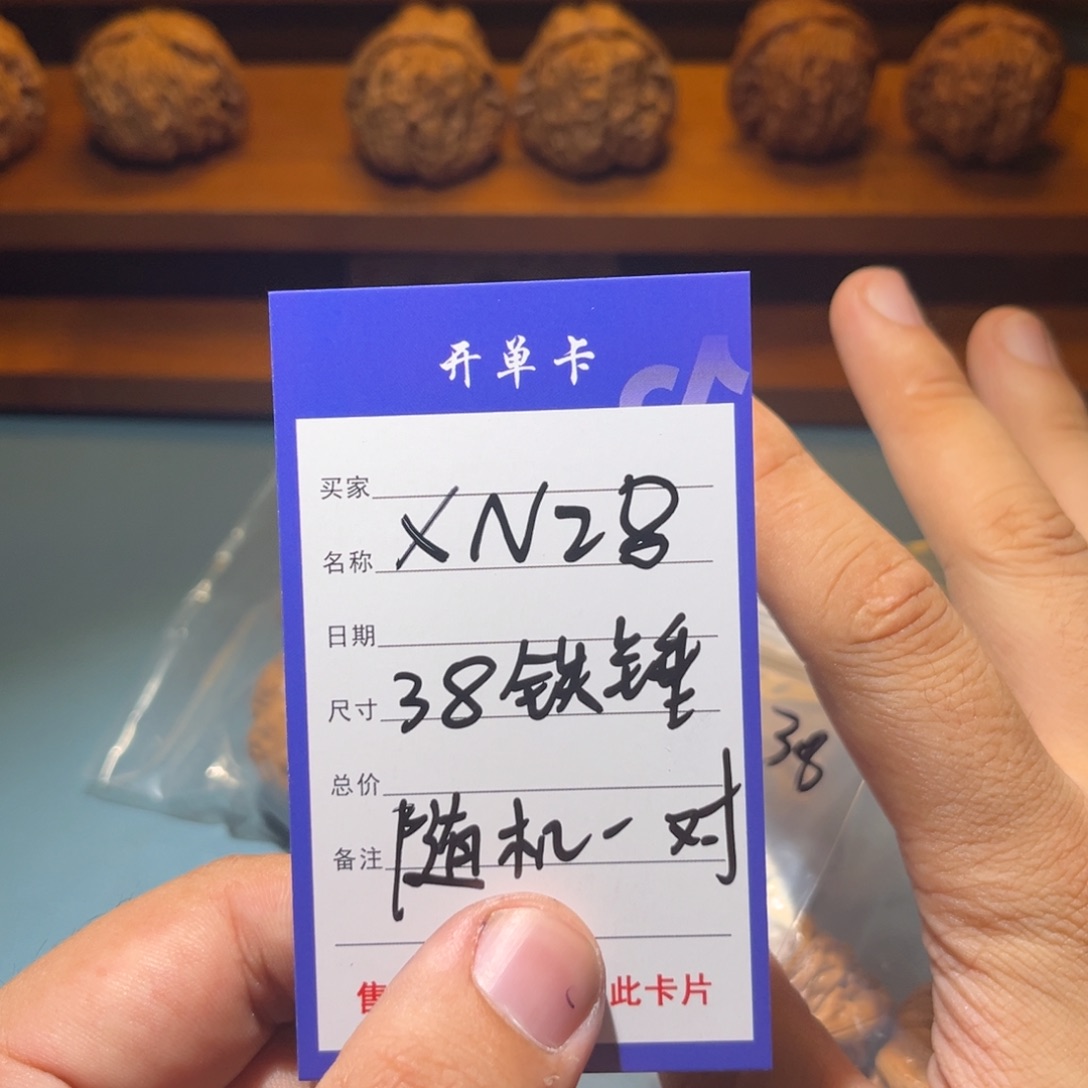 开单卡
买家
XN28
名称
日期
38铁锤
尺寸
总价
随机一对
备注
售
此卡片
38